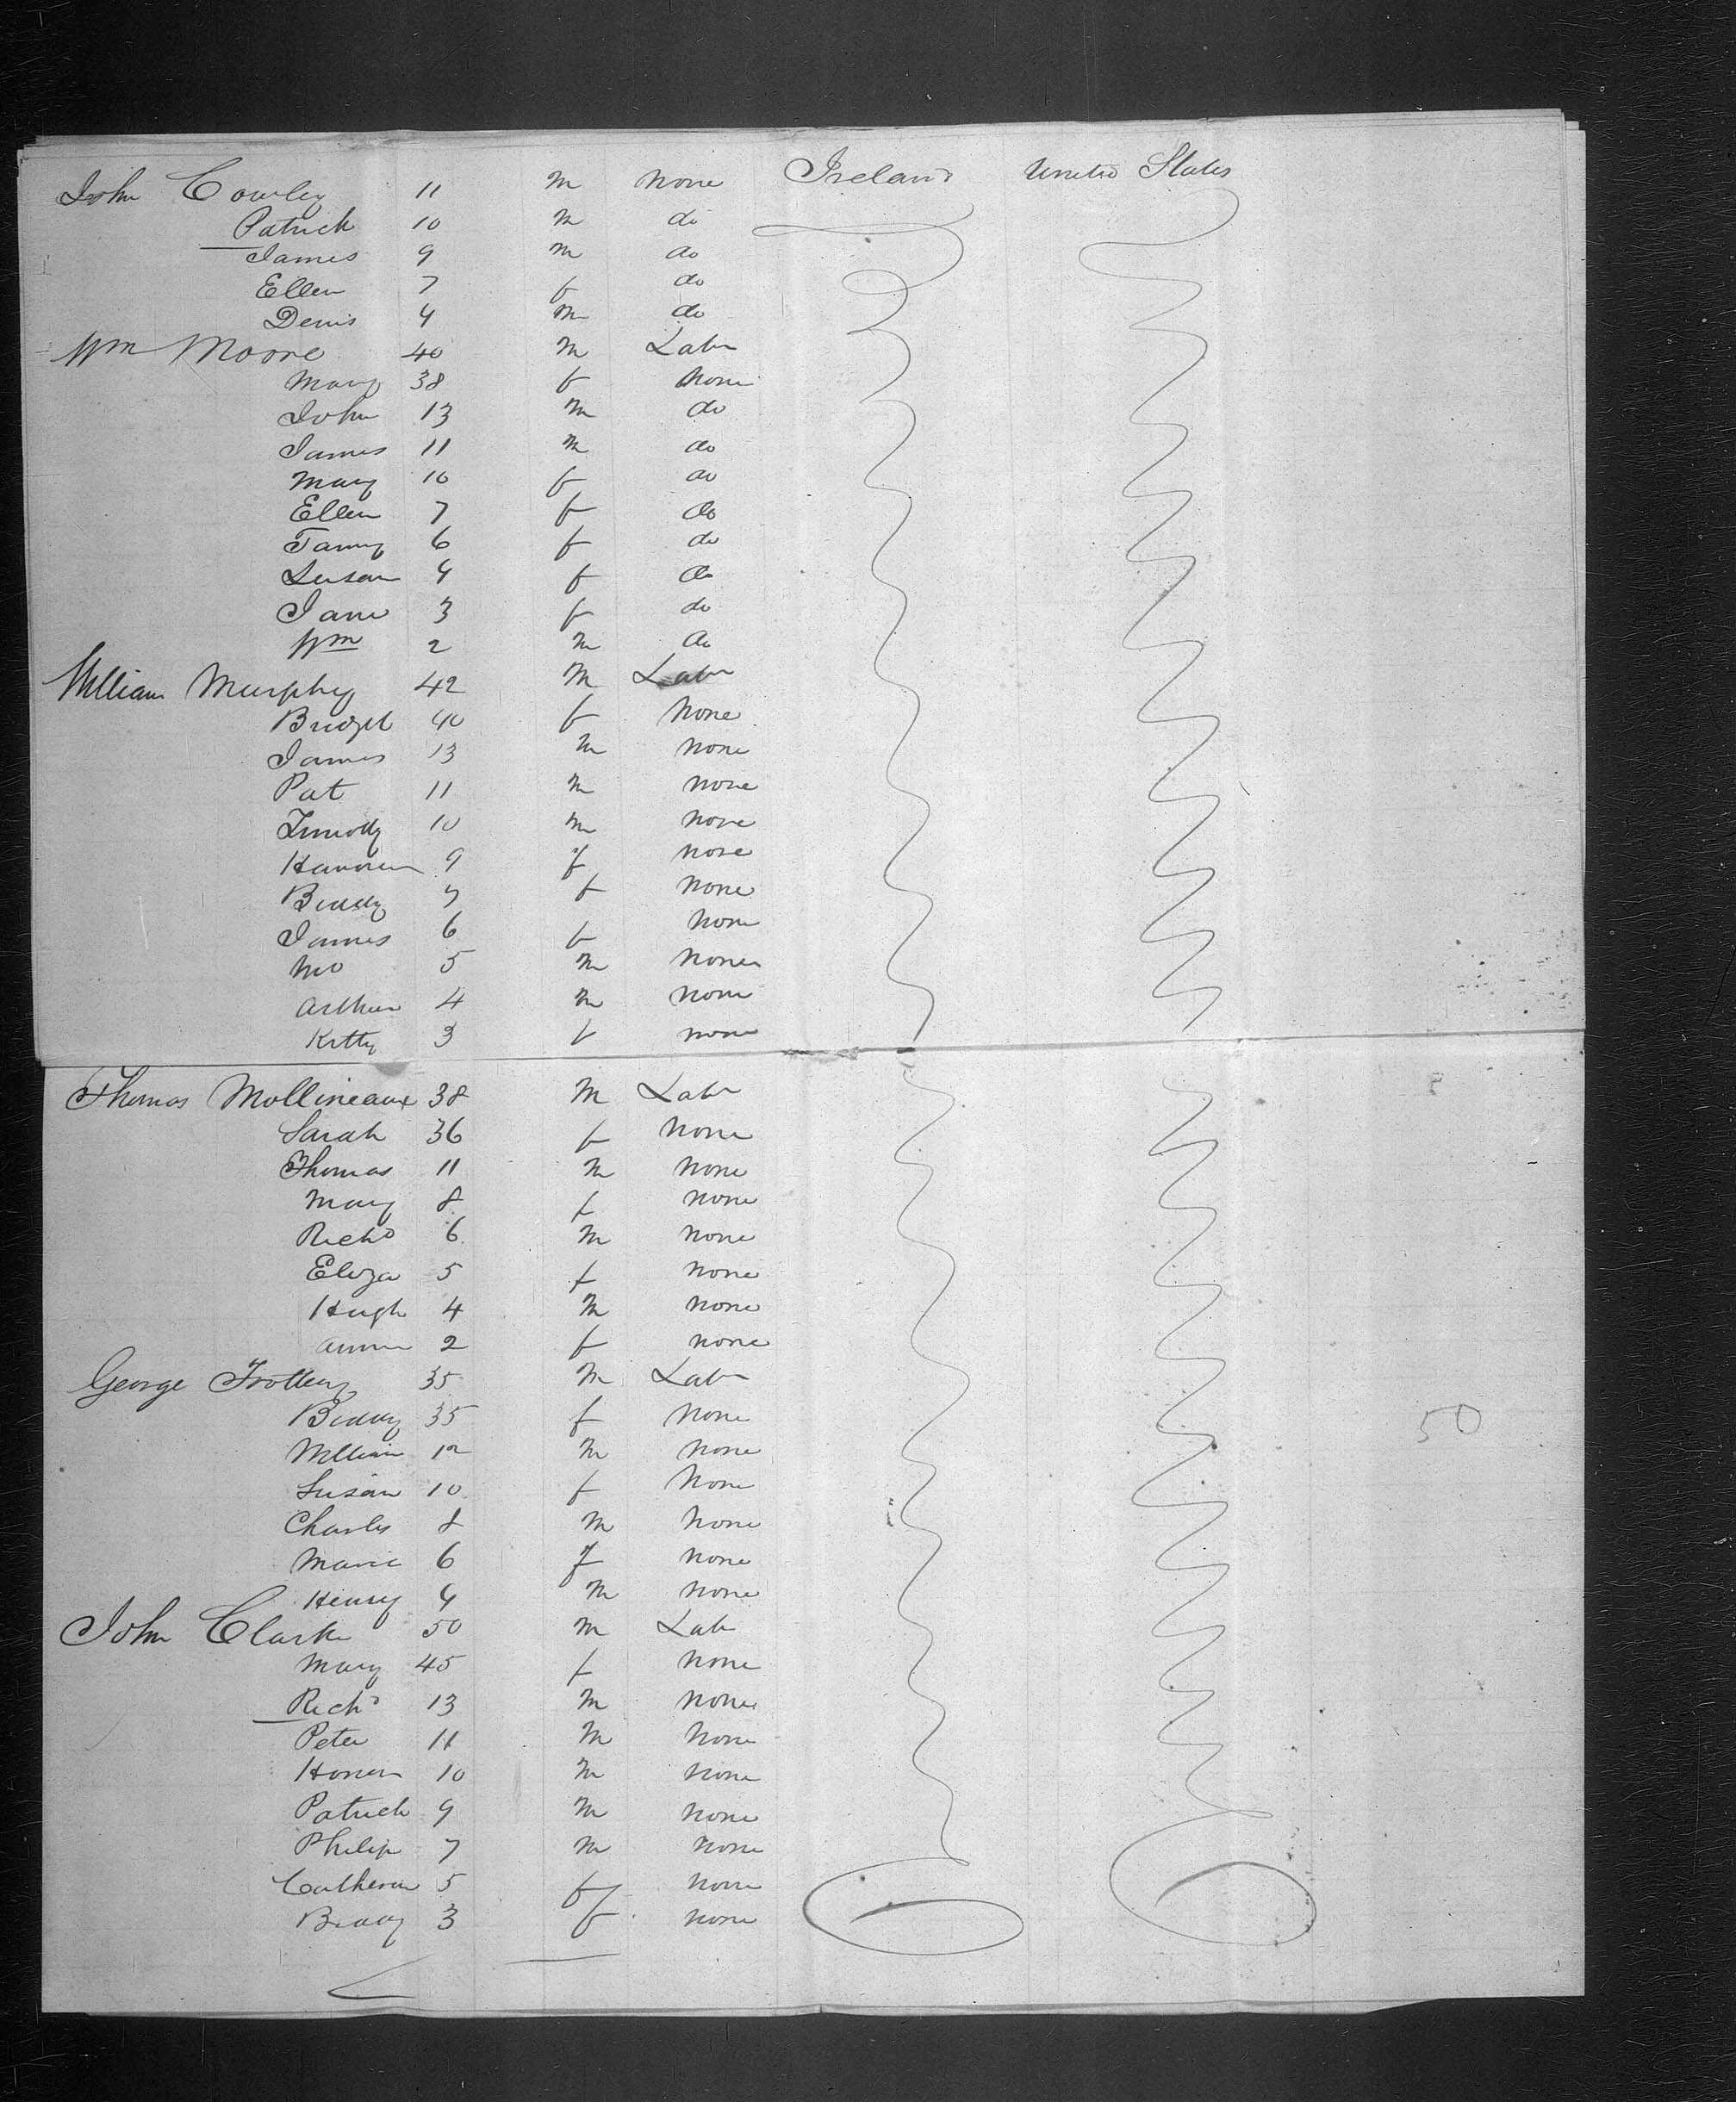 John Cowley 11 m none Ireland United States
Patrick 10 m do
James 9 m do
Ellen 7 f do
Denis 4 m do
Wm Moore 40 m Labr
Mary 38 f none
John 13 m do
James 11 m do
Mary 10 f do
Ellen 7 f do
6 f do
Susan 4 f do
Jane 3 f do
Wm 2 m do
William Murphy 42 m Labr
Bridget 40 f none
James 13 m none
Pat 11 m none
Timothy 10 m none
9 f none
Biddy 7 f none
James 6 f none
5 m none
Arthur 4 m none
Kitty 3 f none
Thomas Mollineaux 38 m Labr
Sarah 36 f none
Thomas 11 m none
Mary 8 f none
Richd 6 m none
Eliza 5 f none
Hugh 4 m none
Ann 2 f none
George 35 m Labr
Biddy 35 f none
William 12 m none
Susan 10 f none
Charles 8 m none
Maria 6 f none
Henry 4 m none
John Clark 50 m Lab
Mary 45 f none
Richd 13 m none
Peter 11 m none
Honor 10 m none
Patrick 9 m none
Philip 7 m none
Catherine 5 f none
Biddy 3 f none
50